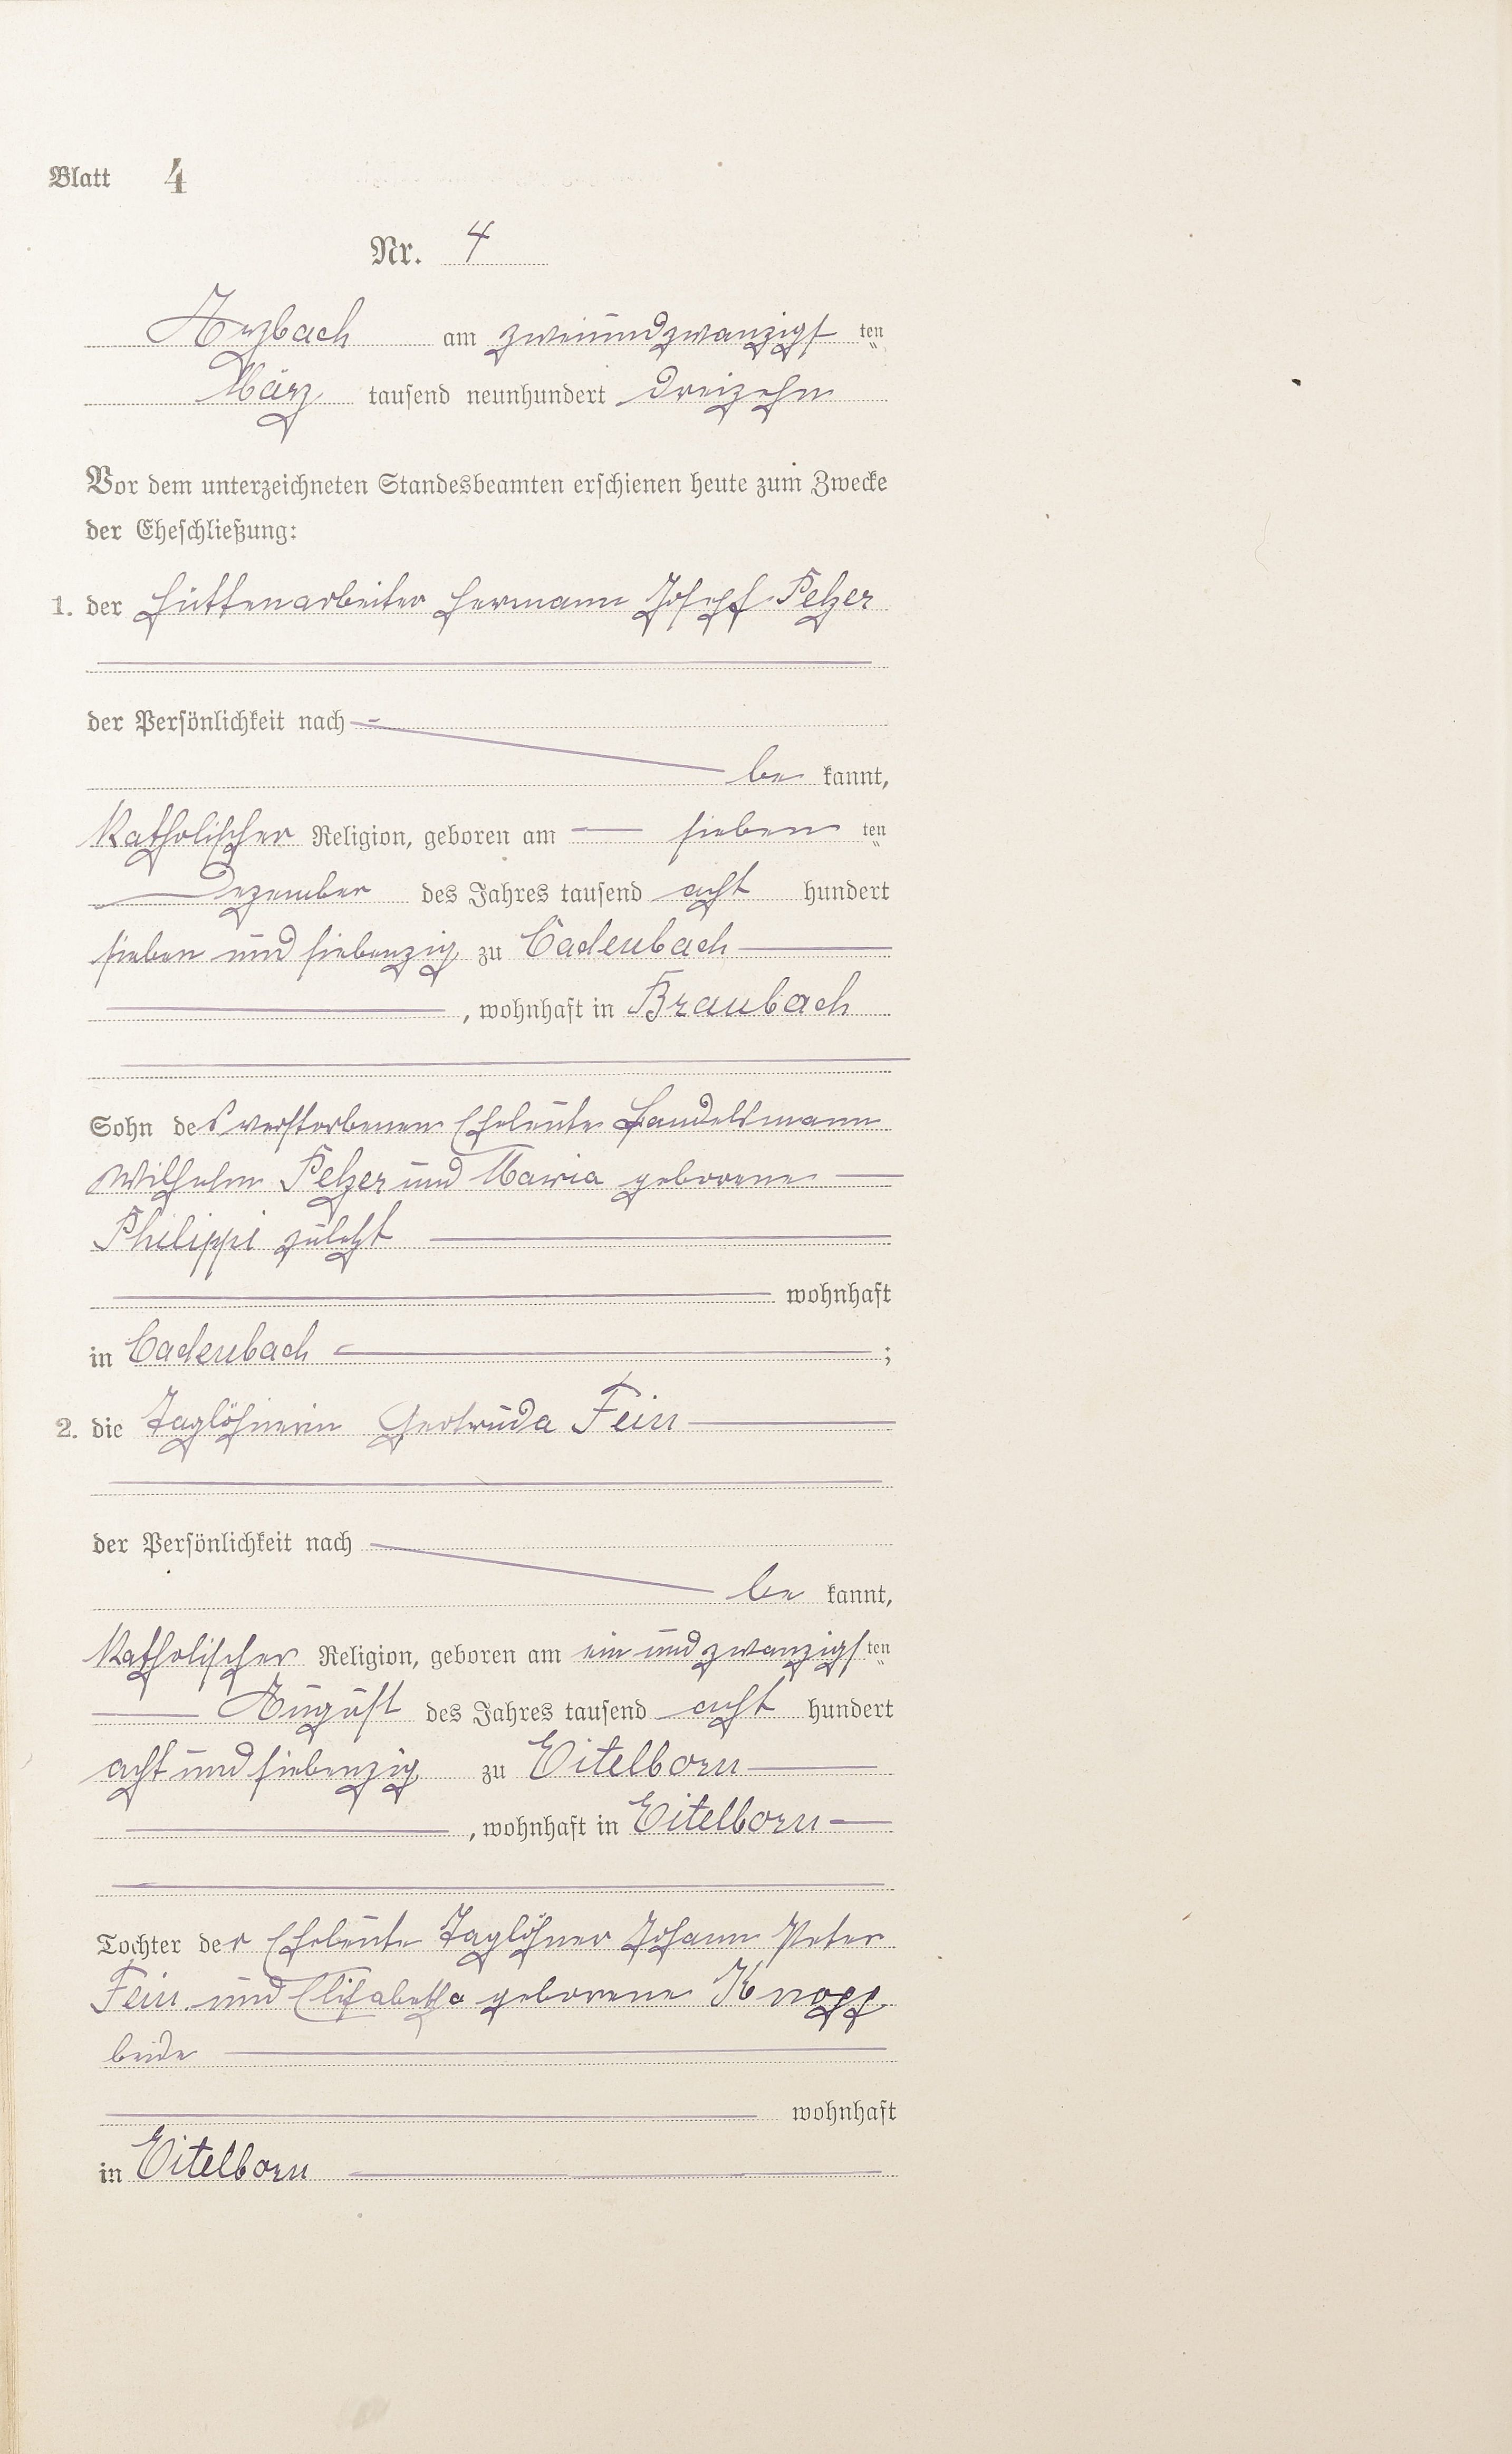 Blatt 4
Nr. 4
Arzbach am zweiundzwanzigsten
März tausend neunhundert dreizehn
Vor dem unterzeichneten Standesbeamten erschienen heute zum Zwecke
der Eheschließung:
1. der Hüttenarbeiter Hermann Josepf Pelzer
der Persönlichkeit nach
be kannt,
Katholischer Religion, geboren am sieben ten
Dezember des Jahres tausend acht hundert
sieben und siebenzig zu Cadenbach
, wohnhaft in Braubach
Sohn des verstorbenen Eheleute Handelsmann
Wilhelm Pelzer und Maria geborene
Philippi zuletzt
wohnhaft
in Cadenbach ;
2. die Taglöhnerin Gertruda Fein
der Persönlichkeit nach
be kannt,
Katholischer Religion, geboren am ein und zwanzigsten
August des Jahres tausend acht hundert
acht und siebenzig zu Eitelborn
, wohnhaft in Eitelborn
Tochter der Eheleute Taglöhner Johann Peter
Fein und Elisabetha geborene Knopp
beide
wohnhaft
in Eitelborn